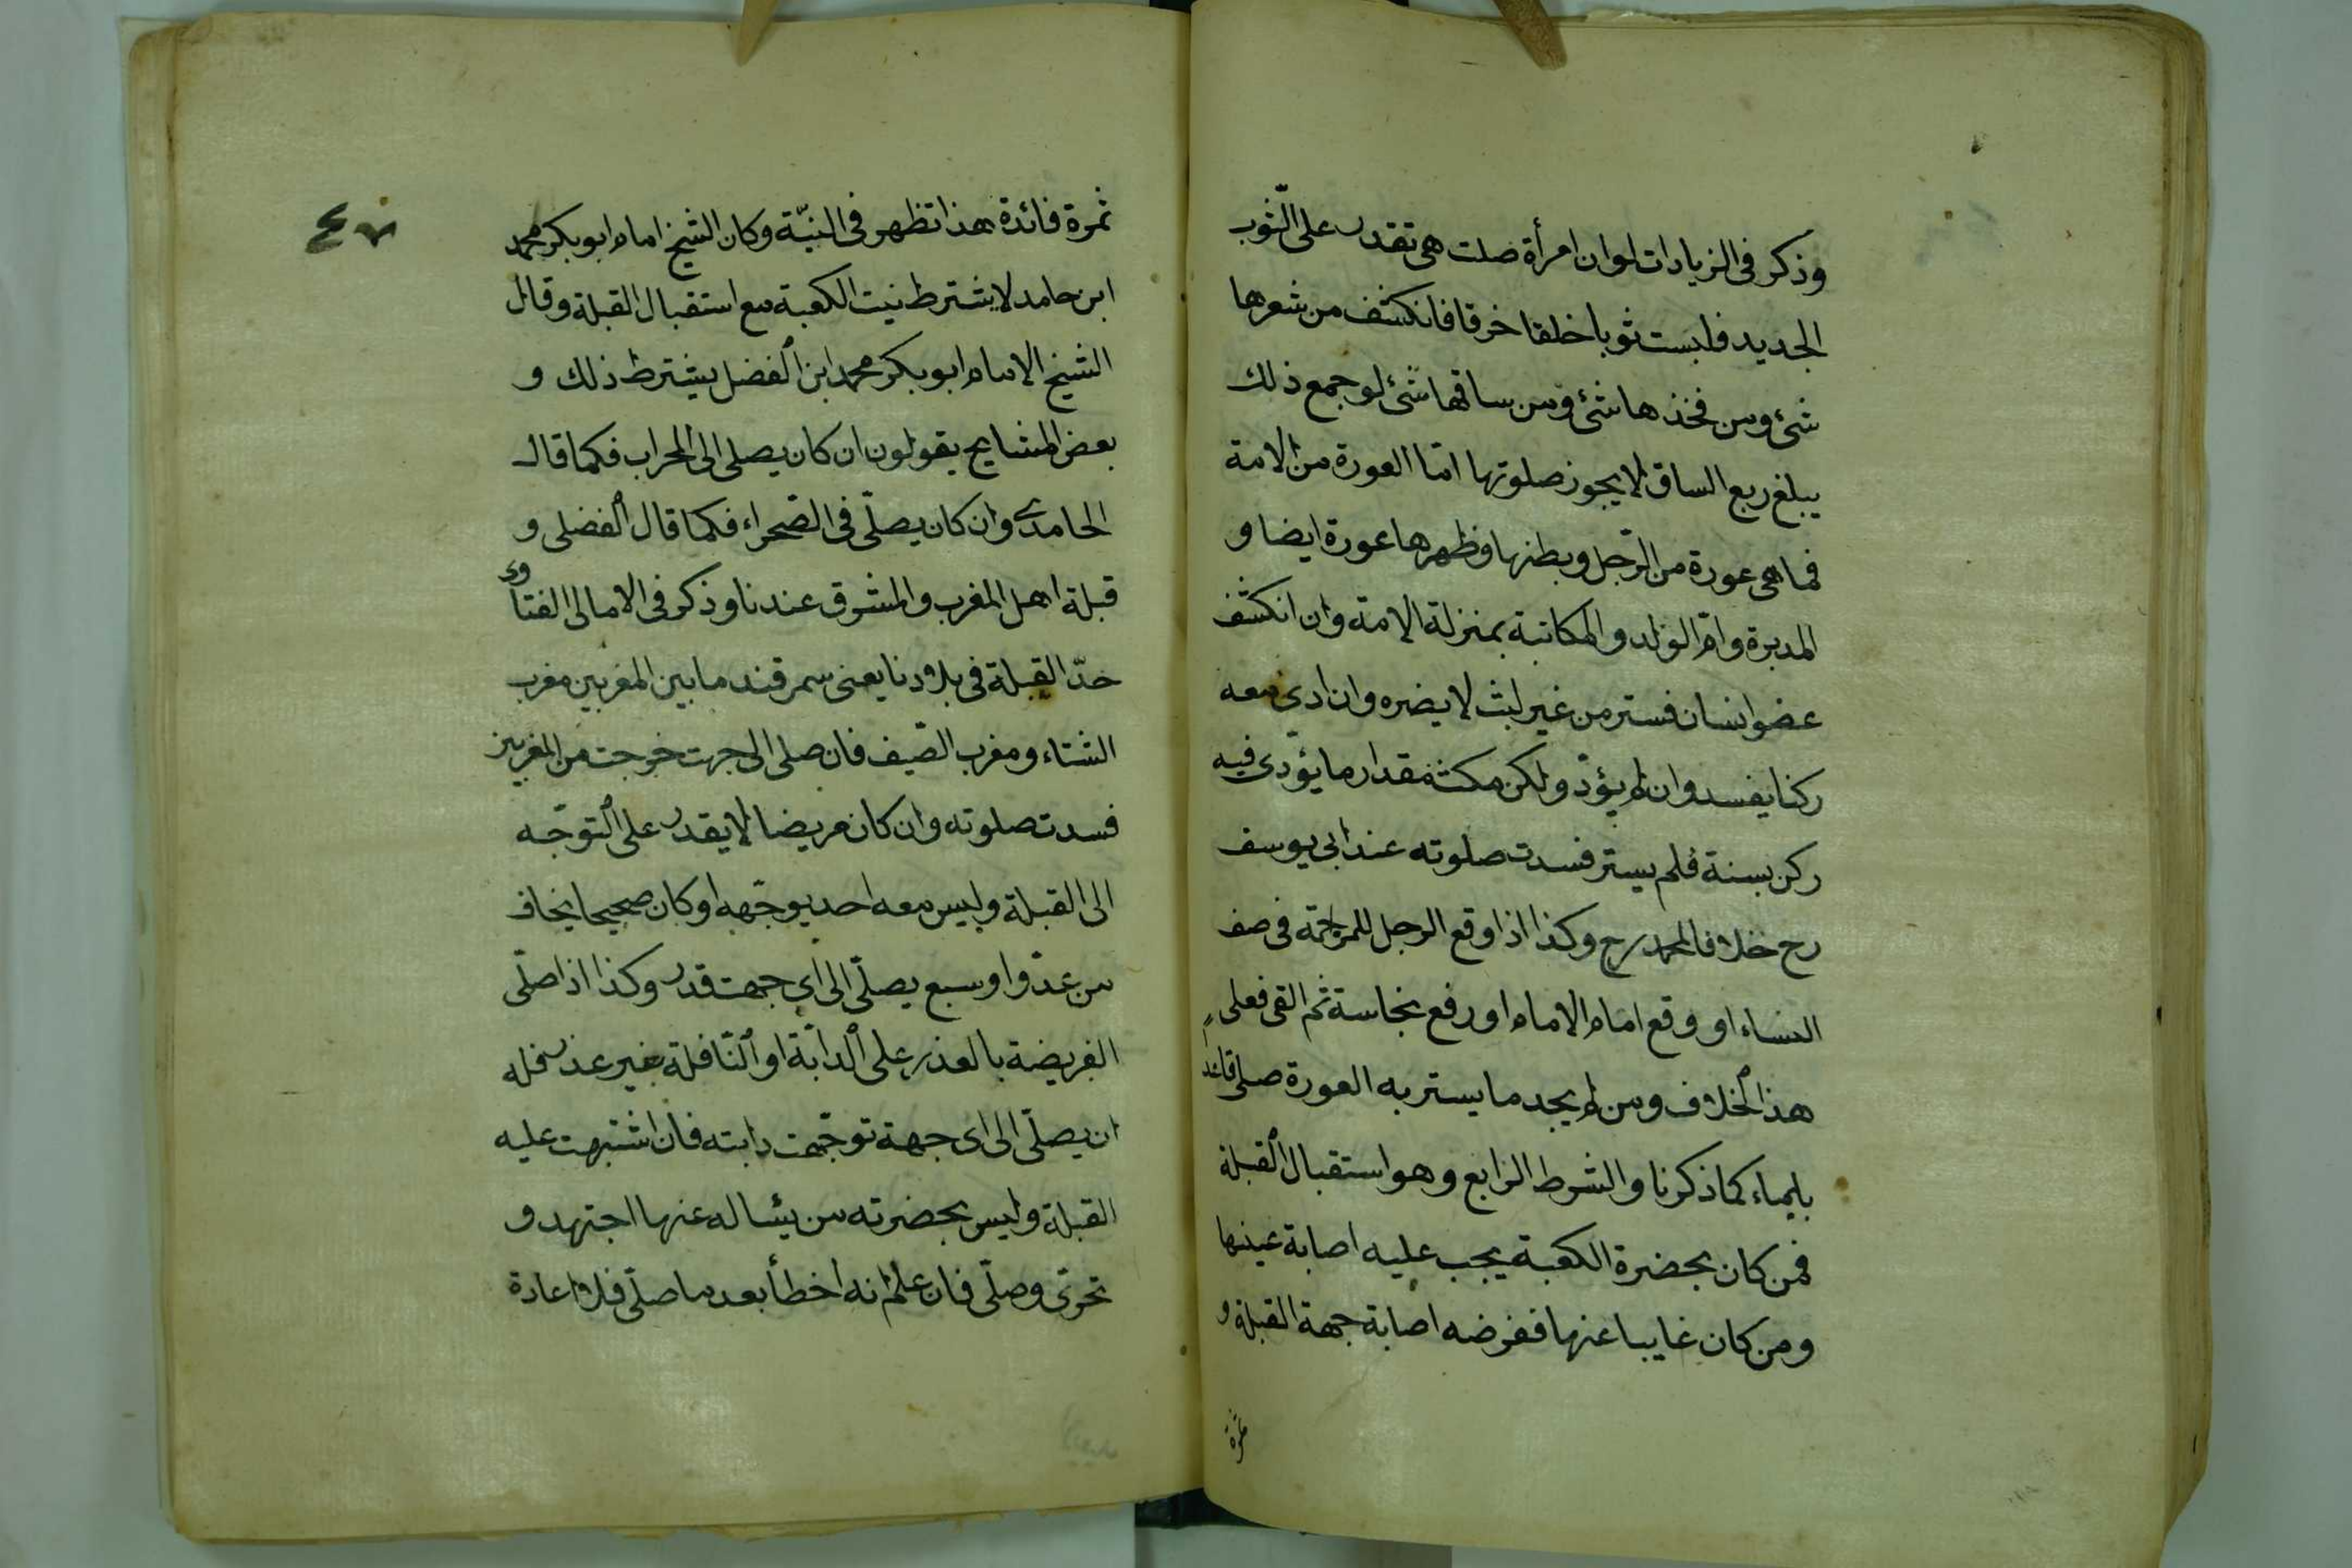 وذكر فى الزيادات لو ان امرأة صلت هى تقدر على الثّوب
الجديد فلبست ثوبا خلقا خرقا فانكشف من شعرها
شئ ومن فخذها شئ ومن ساقها شئ لو جمع ذلك
يبلغ ربع الساق لا يجوز صلوتها امّا العورة من الامة
فما هى عورة من الرّجل وبطنها وظهرها عورة ايضا و
المدبرة وامّ الولد والمكاتبة بمنزلة الامة وان انكشف
عضو انسان فستر من غير لبث لا يضره وان ادى معه
ركنا يفسد وان لم يؤدّ ولكن مكث مقدار ما يؤدى فيه
ركن بسنة فلم يستر فسدت صلوته عند ابى يوسف
رح خلافا لمحمد رح وكذا اذا وقع الرجل للمزاحمة فى صف
النساء او وقع امام الامام او رفع نجاسة ثم القى فعلى
هذا الخلاف ومن لم يجد ما يستر به العورة صلى قاعد
بايماء كما ذكرنا والشرط الرابع وهو استقبال القبلة
فمن كان بحضرة الكعبة يجب عليه اصابة عينها
ومن كان غايبا عنها ففرضه اصابة جهة القبلة و
ثمرة
٤٧
ثمرة فائدة هذا تظهر فى النيّة وكان الشيخ امام ابو بكر محمد
ابن حامد لا يشترط نيت الكعبة مع استقبال القبلة وقال
الشيخ الامام ابو بكر محمد ابن الفضل يشترط ذلك و
بعض المشايح يقولون ان كان يصلى الى المحراب فكما قال
الحامدى وان كان يصلّى فى الصّحراء فكما قال الفضلى و
قبلة اهل المغرب والمشرق عندنا وذكر فى الامالى الفتاوى
حدّ القبلة فى بلادنا يعنى سمرقند ما بين المغربين مغرب
الشتاء ومغرب الصّيف فان صلى الى جهت خرجت من المغربين
فسدت صلوته وان كان مريضا لا يقدر على التوجّه
الى القبلة وليس معه احد يوجّهه او كان صحيحا يخاف
من عدّو او سبع يصلّى الى اى جهت قدر وكذا اذا صلّى
الفريضة بالعذر على الدابّة او النّافلة بغير عذر فله
ان يصلّى الى اى جهة توجّهت دابته فان اشتبهت عليه
القبلة وليس بحضرته من يسأله عنها اجتهد و
تحرّى وصلّى فان علم انه اخطأ بعد ما صلّى فلا اعادة